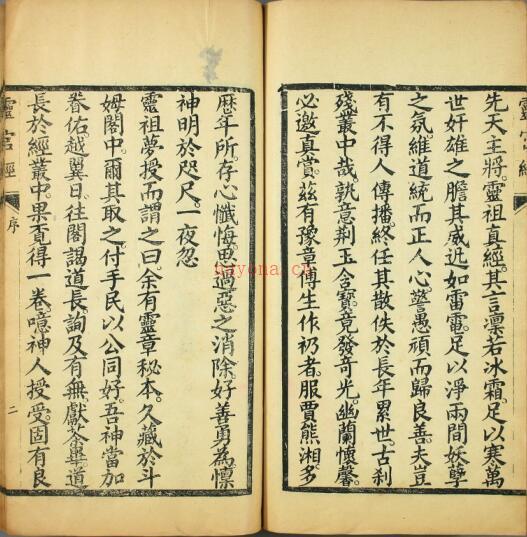 靈官經
先天王將靈祖真經其言凛若冰霜足以寒萬
世奸雄之膽其威迅如雷電足以淨兩間妖孽
之氛維道統而正人心警愚頑而歸良善夫豈
有不得人傳播終任其散佚於長年累世古刹
殘叢中哉孰意荆玉含寳竟發奇光幽蘭懷馨
必邀真賞兹有豫章傅生作礽者服賈熊湘多
歷年所存心懺悔思過惡之消除好善勇為懔
神明於咫尺一夜忽
靈祖夢授而謂之曰余有靈章秘本久藏於斗
姆閣中爾其取之付手民以公同好吾神當加
眷佑越翼日往閣謁道長詢及有無獻茶畢道
長於經叢中果覔得一卷噫神人授受固有良
靈官經
序
二
nayona.cn